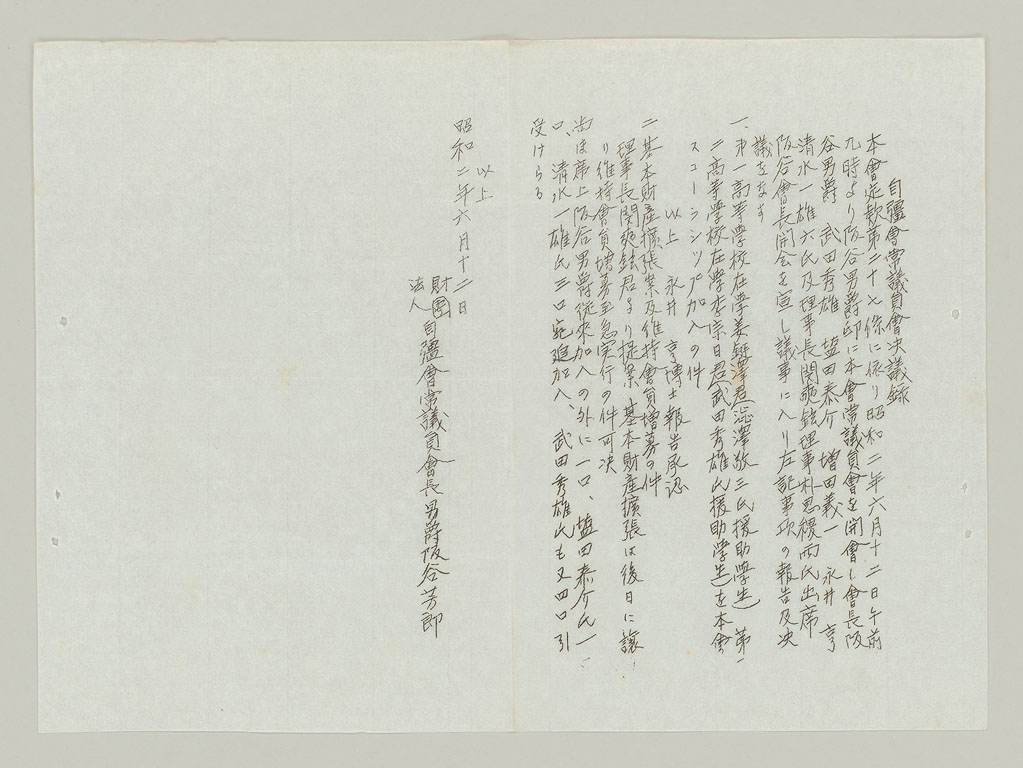 自彊會常議員會决議録
本會定款第二十七條に依り昭和二年六月十二日午前
九時より阪谷男爵邸に本會常議員會を開會し會長阪
谷男爵　武田秀雄　塩田泰介　増田義一　永井　亨
清水一雄六氏及理事長関 理事朴思稷両氏出席
阪谷會長開会を宣し議事に入り左記事項の報告及决
議をなす
一、第一高等学校在学姜 君(澁澤敬三氏援助学生)第一
二高等学校在学李宗日君(武田秀雄氏援助学生)を本會
スコーラシップ加入の件
以上　永井　亨博士報告承認
二基本財産擴張案及維持會員増募の件
理事長関 君より提案　基本財産擴張は後日に譲
り維持會員増募至急実行の件可决
尚ほ席上阪谷男爵従来加入の外に一口、塩田泰介氏一
口、清水一雄氏三口宛追加入、武田秀雄氏も又四口引
受けらる
以上
昭和二年六月十二日
財團
法人
自彊會常議員會長男爵阪谷芳郎